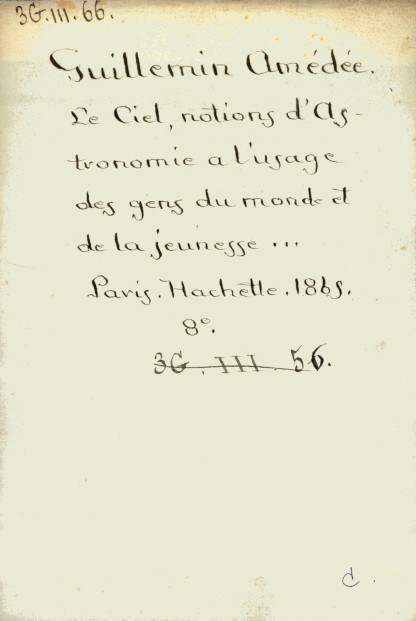 3G.III.66.
Guillemin Amédée.
Le Ciel, notions d'As-
tronomie a l'usage
des gens du monde et
de la jeunesse ...
Paris. Hachette. 1865.
8º.
3G. III. 56.